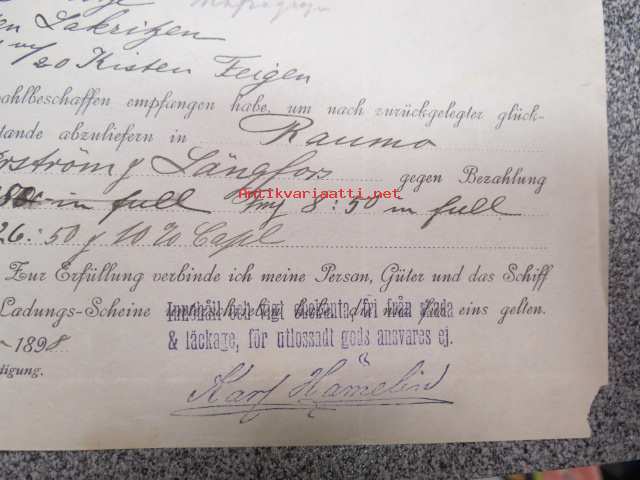 Lakritzen
/20 Kisten Feigen
ahlbeschaffen empfangen habe, um nach zurückgelegter glück-
tande abzuliefern in Raumo
rström & Långfors gegen Bezahlung
in full Fmy 8:50 in full
26:50 & 10 % Capl
Antikvariaatti.net
Zur Erfüllung verbinde ich meine Person, Güter und das Schiff
Ladungs-Scheine eins gelten.
Innehåll och vigt obekanta, fri från skada
& läckage, för utlossadt gods ansvares ej.
1898
tigung.
Karl Hamelin